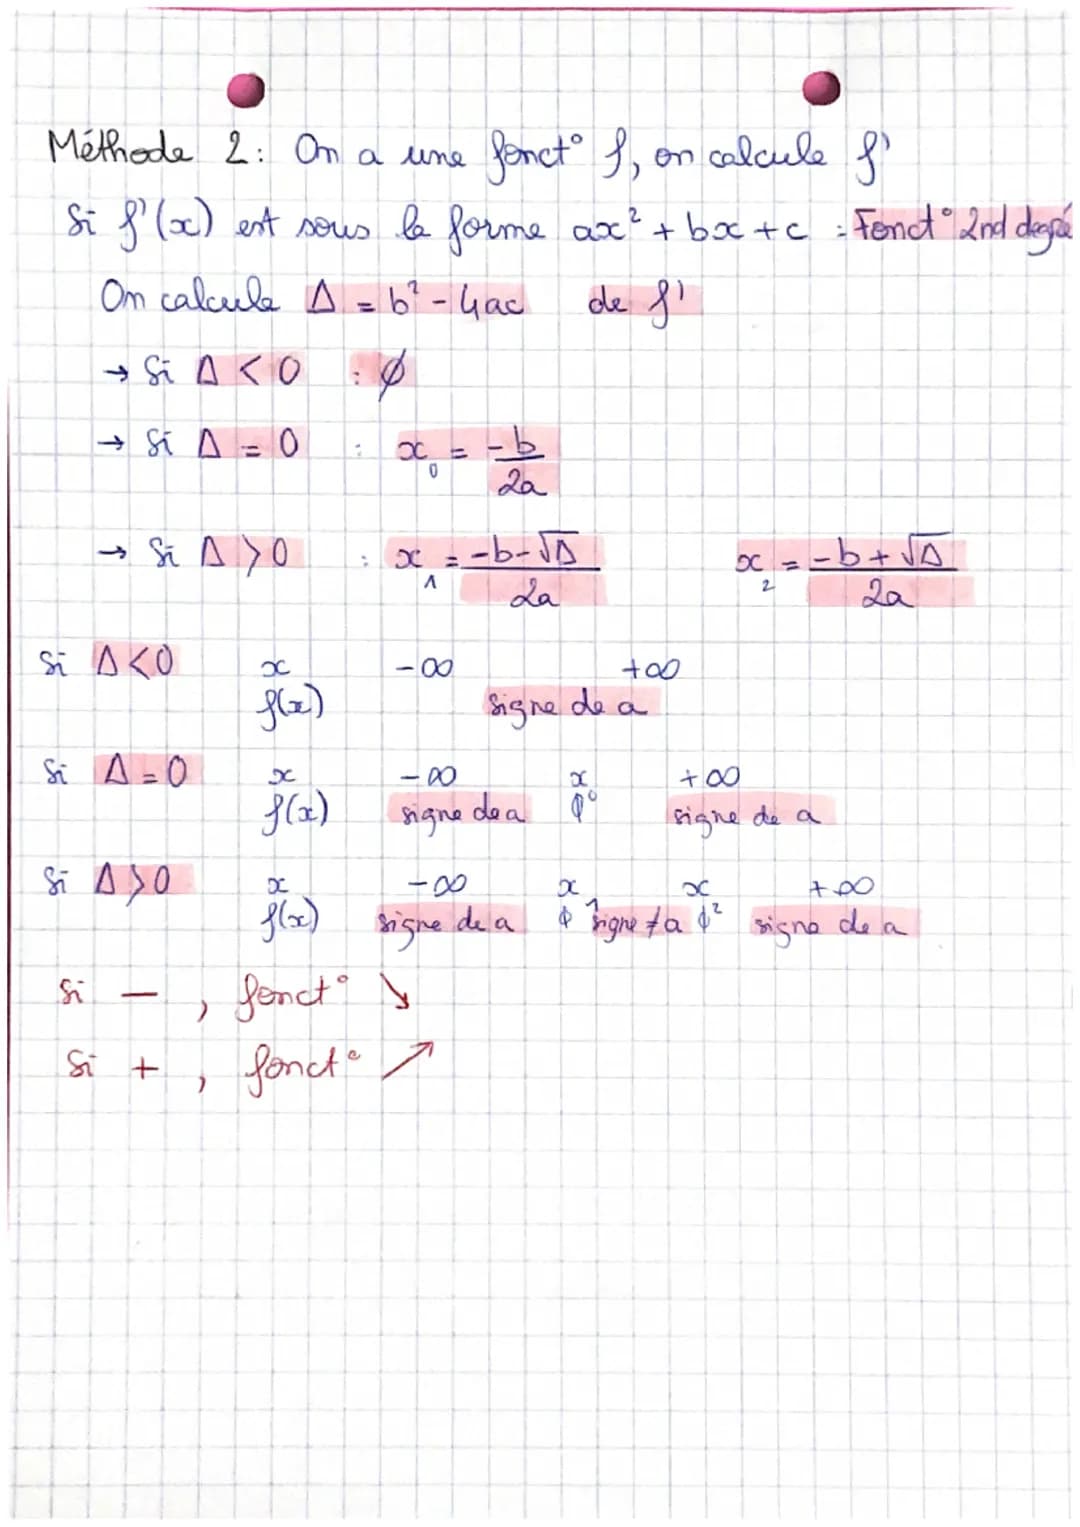 Méthode 2: On a une fonct° f, on calcule f'
Si f'(x) est sous la forme ax² + bx + c : Fonct° 2nd degré
On calcule Δ = b² - 4ac de f'
→ Si Δ < 0 : ∅
→ Si Δ = 0 : x₀ = -b/2a
→ Si Δ > 0 : x₁ = -b-√Δ/2a x₂ = -b+√Δ/2a
Si Δ<0 x -∞ +∞
f(x) signe de a
Si Δ=0 x -∞ x₀ +∞
f(x) signe de a ϕ signe de a
Si Δ>0 x -∞ x₁ x₂ +∞
f(x) signe de a ϕ signe ≠ a ϕ signe de a
Si - , fonct° ↘
Si + , fonct° ↗